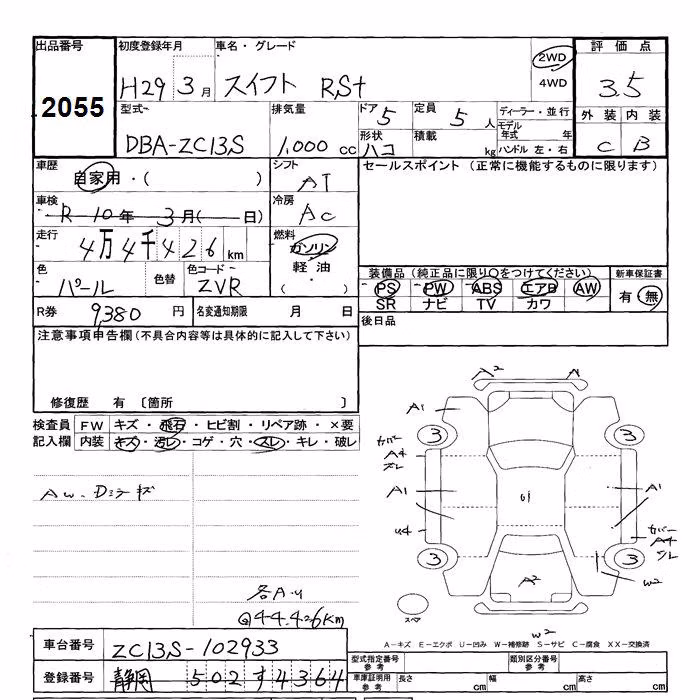 出品番号 初度登録年月 車名・グレード 評価点
2055
H29 3月 スイフト RSt 2WD 3.5
4WD
型式 排気量 ドア 5 定員 5人 ディーラー・並行 外装 内装
DBA-ZC13S 1,000 cc モデル年式 年 C B
形状 ハコ 積載 kg ハンドル 左・右
車歴 自家用・( ) シフト AT セールスポイント (正常に機能するものに限ります)
車検 R-10年 3月( 日) 冷房 AC
走行 4万4千426km 燃料 ガソリン
軽油・( )
色 パール 色替 色コード ZVR
装備品(純正品に限り○をつけてください) 新車保証書
PS PW ABS エアB AW 有・無
SR ナビ TV カワ
R券 9,380円 名変通知期限 月 日 後日品
注意事項申告欄(不具合内容等は具体的に記入して下さい)
修復歴 有 〔箇所 〕
検査員 FW キズ・飛石・ヒビ割・リペア跡・×要
記入欄 内装 キズ・汚レ・コゲ・穴・スレ・キレ・破レ
A2 A
A1
3 3
カバー
A4
スレ
A1 G1 A1
U4 カバー
A4
スレ
3 3
A2 W2
スペア
W2
各A-U
44.426Km
A-キズ E-エクボ U-凹み W-補修跡 S-サビ C-腐食 XX-交換済
車台番号 ZC13S-102933
登録番号 静岡 502す4364
型式指定番号 参考 類別区分番号 参考
車庫証明用 参考 長さ cm 幅 cm 高さ cm